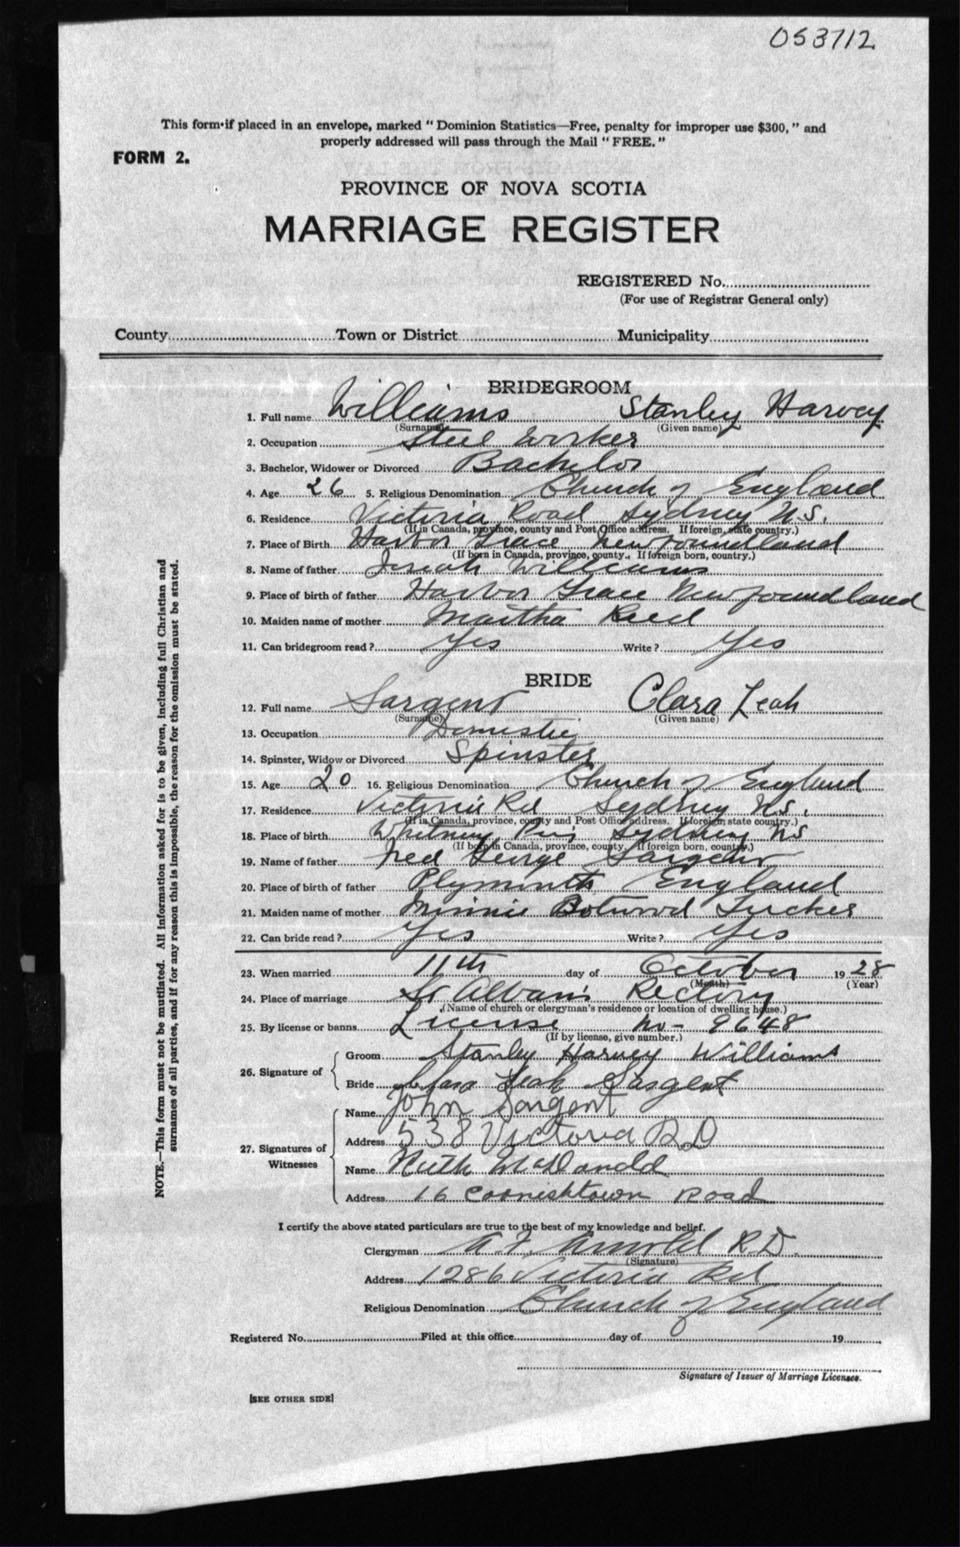 053712
This form if placed in an envelope, marked "Dominion Statistics—Free, penalty for improper use $300," and
properly addressed will pass through the Mail "FREE."
FORM 2.
PROVINCE OF NOVA SCOTIA
MARRIAGE REGISTER
REGISTERED No.
(For use of Registrar General only)
County Town or District Municipality
BRIDEGROOM
1. Full name Williams Stanley Harvey
(Surname) (Given name)
2. Occupation Steel Worker
3. Bachelor, Widower or Divorced Bachelor
4. Age 26 5. Religious Denomination Church of England
6. Residence Victoria Road Sydney N.S.
(If in Canada, province, county and Post Office address. If foreign, state country.)
7. Place of Birth Harbor Grace Newfoundland
(If born in Canada, province, county. If foreign born, country.)
8. Name of father Josiah Williams
9. Place of birth of father Harbor Grace Newfoundland
10. Maiden name of mother Martha Reed
11. Can bridegroom read? Yes Write? Yes
BRIDE
12. Full name Sargent Clara Leah
(Surname) (Given name)
13. Occupation Domestic
14. Spinster, Widow or Divorced Spinster
15. Age 20 16. Religious Denomination Church of England
17. Residence Victoria Rd Sydney N.S.
(If in Canada, province, county and Post Office address. If foreign state country.)
18. Place of birth Whitney Pier Sydney NS
(If born in Canada, province, county. If foreign born, country.)
19. Name of father Fred George Sargent
20. Place of birth of father Plymouth England
21. Maiden name of mother Minnie Botwood Tucker
22. Can bride read? Yes Write? Yes
23. When married 11th day of October 1928
(Month) (Year)
24. Place of marriage St Alban's Rectory
(Name of church or clergyman's residence or location of dwelling house.)
25. By license or banns License no- 9648
(If by license, give number.)
26. Signature of
Groom Stanley Harvey Williams
Bride Clara Leah Sargent
27. Signatures of Witnesses
Name John Sargent
Address 538 Victoria RD
Name Ruth McDonald
Address 16 Cornishtown Road
I certify the above stated particulars are true to the best of my knowledge and belief.
Clergyman A.F. Arnold R.D.
(Signature)
Address 1286 Victoria Rd
Religious Denomination Church of England
Registered No. Filed at this office day of 19
Signature of Issuer of Marriage Licenses.
[SEE OTHER SIDE]
NOTE.—This form must not be mutilated. All information asked for is to be given, including full Christian and
surnames of all parties, and if for any reason this is impossible, the reason for the omission must be stated.